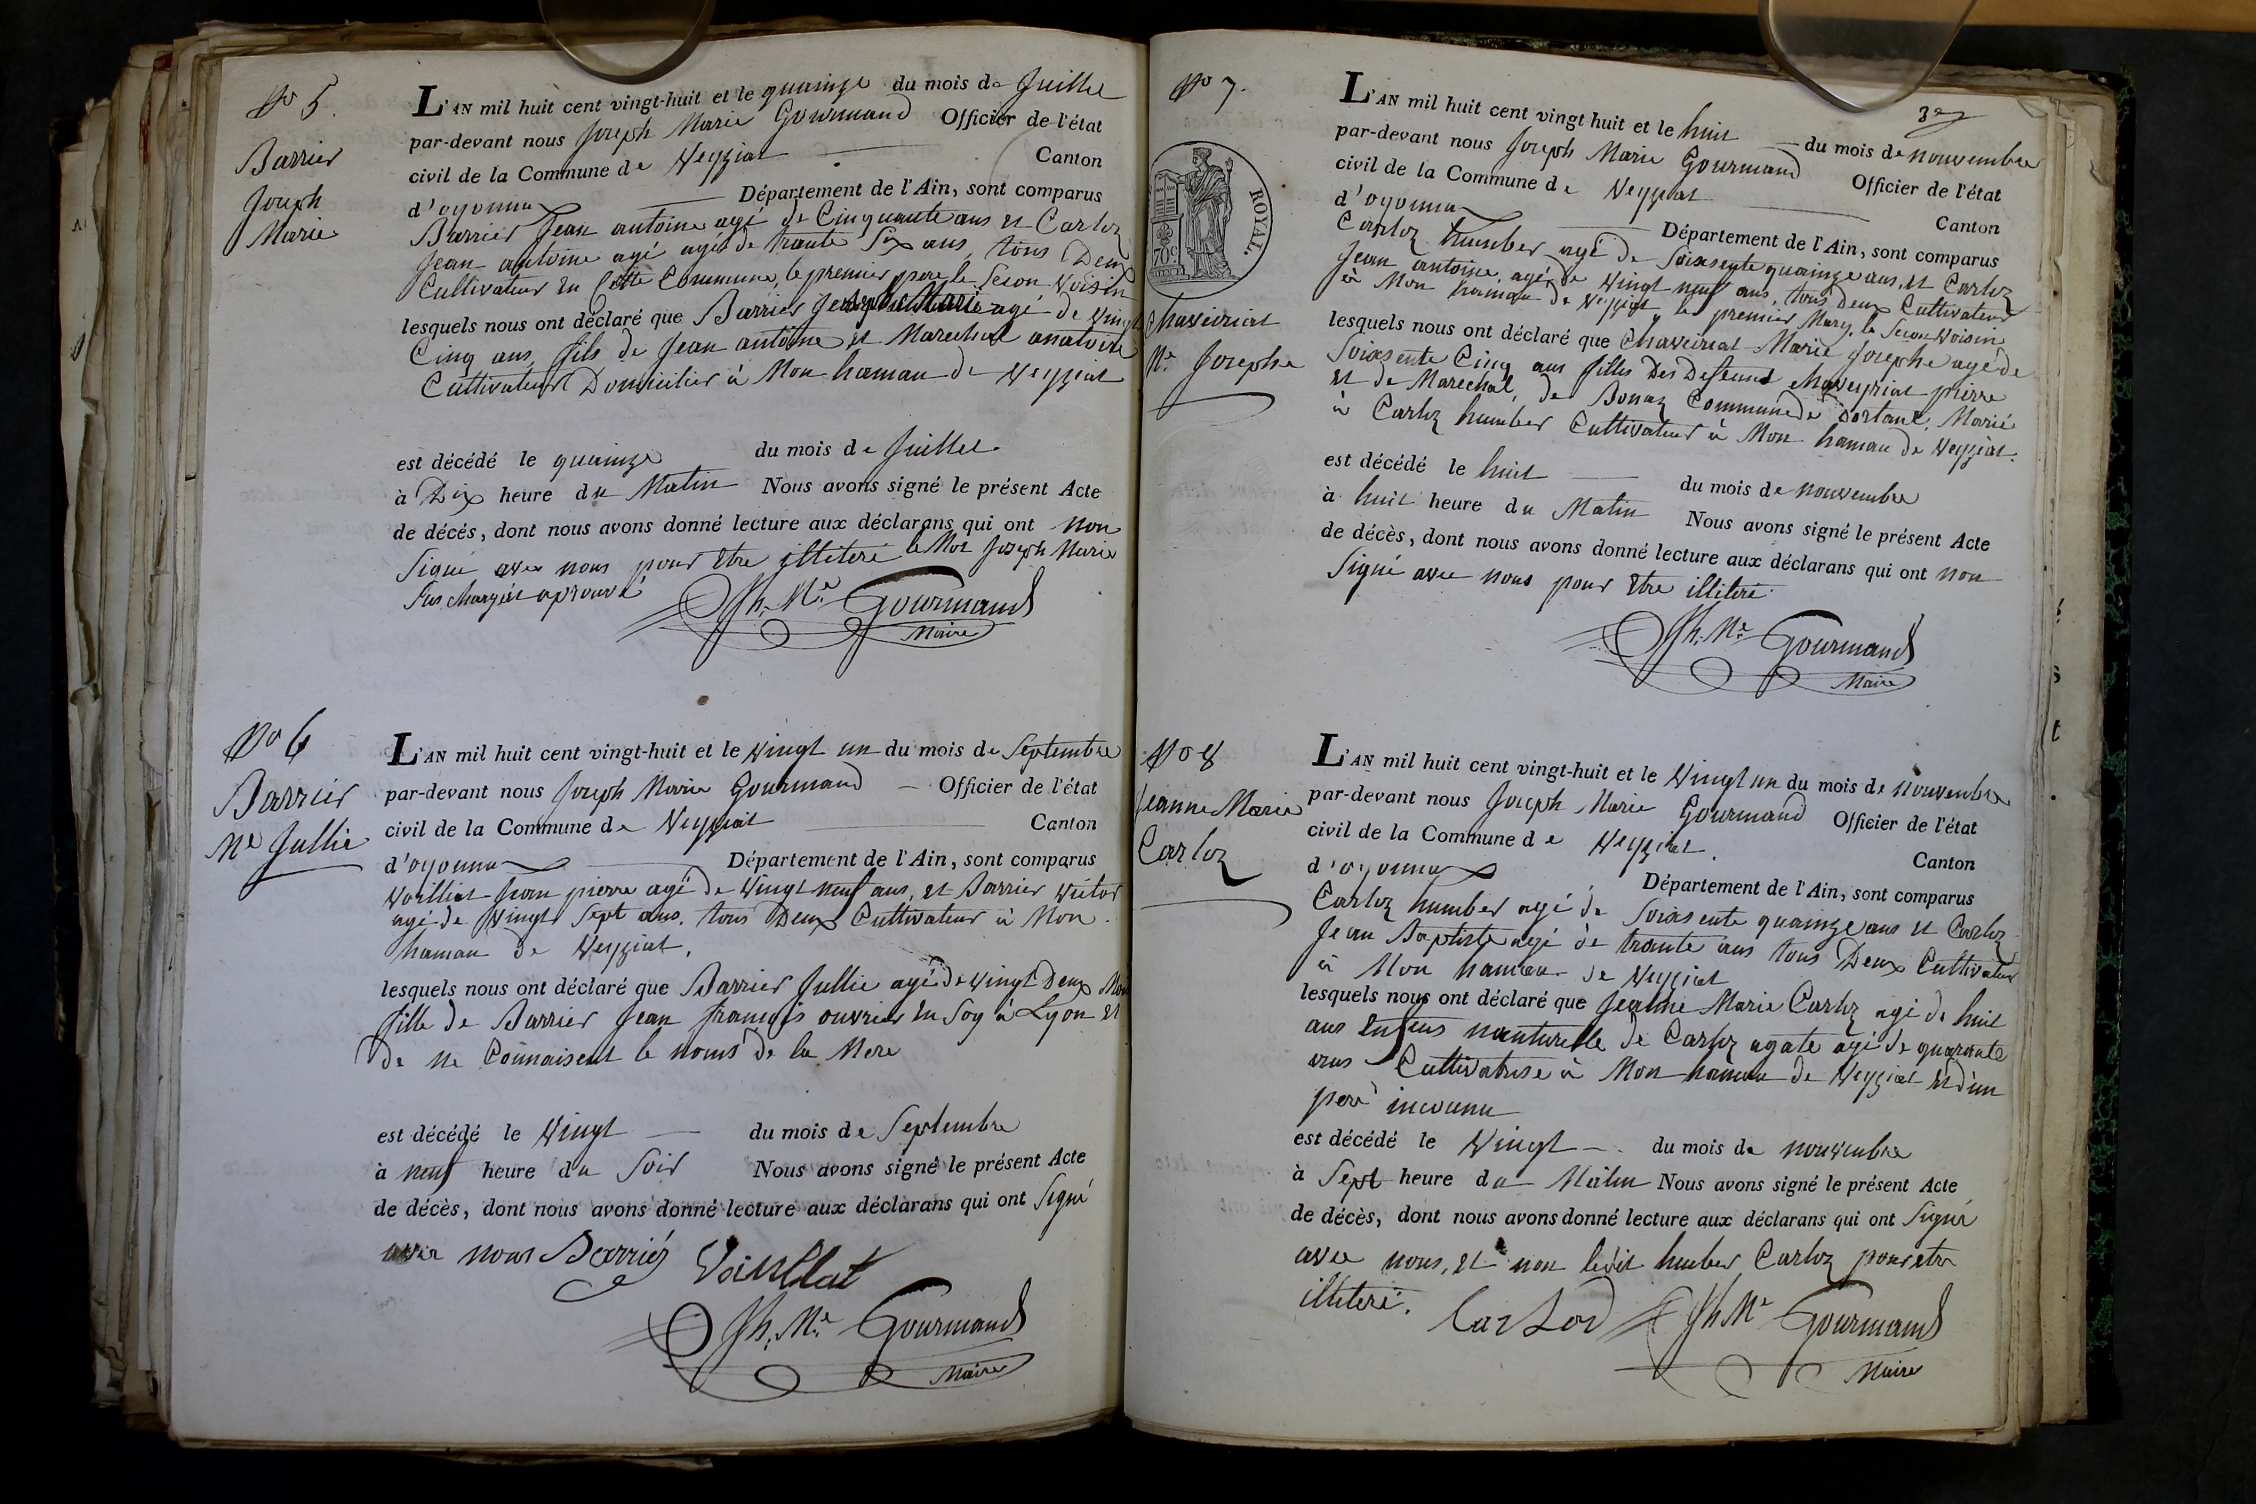 No 5.
Barrier
Joseph
Marie
L'AN mil huit cent vingt-huit et le quainze du mois de Juillet
par-devant nous Joseph Marie Gourmand Officier de l'état
civil de la Commune de Veyziat Canton
d'oyonnax Département de l'Ain, sont comparus
Barrier Jean antoine agé de Cinquante ans et Carloz
Jean antoine agé agé de trante Six ans, tous Deux
Cultivateur En Cette Commune, le premier pere le Secon Voisin
lesquels nous ont déclaré que Barrier Joseph Marie agé de vingt
Cinq ans, fils de Jean antoine et Marechal anatoile
Cultivateur Domicilier à Mon hamau de Veyziat
est décédé le quainze du mois de Juillet
à Dix heure du Matin Nous avons signé le présent Acte
de décès, dont nous avons donné lecture aux déclarans qui ont non
Signé avec nous pour Etre illiteré le Mot Joseph Marie
Sus Chargé et aprouvé
Jh. Me. Gourmand
Maire
No 6
Barrier
Me Jullie
L'AN mil huit cent vingt-huit et le vingt un du mois de Septembre
par-devant nous Joseph Marie Gourmand Officier de l'état
civil de la Commune de Veyziat Canton
d'oyonnax Département de l'Ain, sont comparus
Voilliat Jean pierre agé de vingt neuf ans, et Barrier Victor
agé de vingt Sept ans, tous Deux Cultivateur à Mon
hamau de Veyziat.
lesquels nous ont déclaré que Barrier Jullie agé de vingt Deux Mois
fille de Barrier Jean françois ouvrier En Soy à Lyon et
de ne Connaisent le noms de la Mere
est décédé le vingt du mois de Septembre
à neuf heure du Soir Nous avons signé le présent Acte
de décès, dont nous avons donné lecture aux déclarans qui ont Signé
avec nous Barrier Voilliat
Jh. Me. Gourmand
Maire
No 7.
32
ROYAL.
70c
Chaveiriat
Me Josephe
L'AN mil huit cent vingt huit et le huit du mois de nouvembre
par-devant nous Joseph Marie Gourmand Officier de l'état
civil de la Commune de Veyziat Canton
d'oyonnax Département de l'Ain, sont comparus
Carloz humber agé de Soixsente quainze ans, et Carloz
Jean antoine, agé de vingt neuf ans, tous deux Cultivateur
à Mon hamau de Veyziat, le premier Mary, le Secon Voisin
lesquels nous ont déclaré que Chaveiriat Marie Josephe agé de
Soixsente Cinq ans filles Des Defeunt Chaveyriat pierre
et de Marechal, de Bonaz Commune de Dortant, Marié
à Carloz humber Cultivateur à Mon hamau de Veyziat.
est décédé le huit du mois de nouvembre
à huit heure du Matin Nous avons signé le présent Acte
de décès, dont nous avons donné lecture aux déclarans qui ont non
Signé avec nous pour Etre illiteré.
Jh. Me. Gourmand
Maire
No 8
Jeanne Marie
Carloz
L'AN mil huit cent vingt-huit et le vingt un du mois de nouvembre
par-devant nous Joseph Marie Gourmand Officier de l'état
civil de la Commune de Veyziat. Canton
d'oyonnax Département de l'Ain, sont comparus
Carloz humber agé de Soixsente quainze ans et Carloz
Jean Baptiste agé de trante ans tous Deux Cultivateur
à Mon hamau de Veyziat
lesquels nous ont déclaré que Jeanne Marie Carloz agé de huit
ans Enfens nauturelle de Carloz agate agé de quarante
ans Cultivatrise à Mon hamau de Veyziat Et d'un
pere incounu
est décédé le vingt du mois de nouvembre
à Sept heure du Matin Nous avons signé le présent Acte
de décès, dont nous avons donné lecture aux déclarans qui ont Signé
avec nous, et non ledit humber Carloz pour etre
illiteré.
Carlod Jh Me Gourmand
Maire